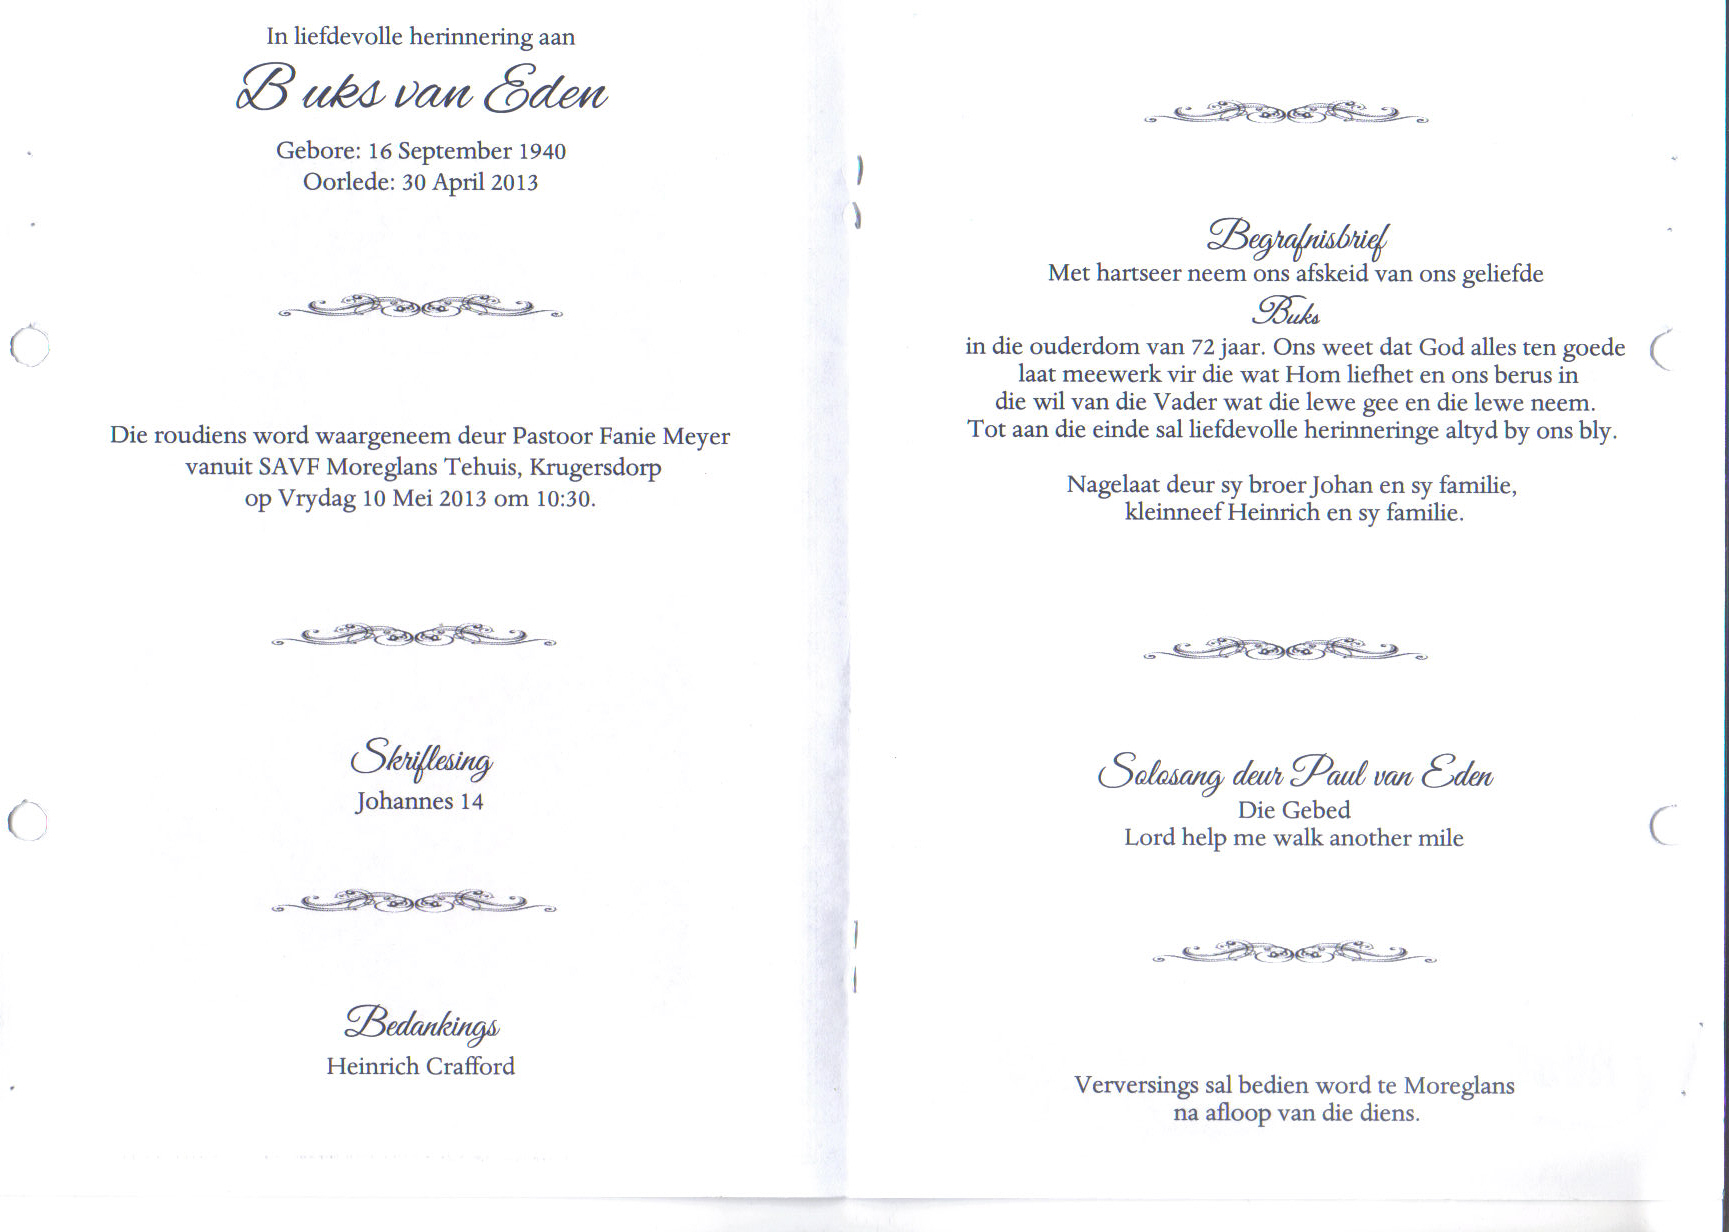 In liefdevolle herinnering aan
Buks van Eden
Gebore: 16 September 1940
Oorlede: 30 April 2013
Die roudiens word waargeneem deur Pastoor Fanie Meyer
vanuit SAVF Moreglans Tehuis, Krugersdorp
op Vrydag 10 Mei 2013 om 10:30.
Skriflesing
Johannes 14
Bedankings
Heinrich Crafford
Begrafnisbrief
Met hartseer neem ons afskeid van ons geliefde
Buks
in die ouderdom van 72 jaar. Ons weet dat God alles ten goede
laat meewerk vir die wat Hom liefhet en ons berus in
die wil van die Vader wat die lewe gee en die lewe neem.
Tot aan die einde sal liefdevolle herinneringe altyd by ons bly.
Nagelaat deur sy broer Johan en sy familie,
kleinneef Heinrich en sy familie.
Solosang deur Paul van Eden
Die Gebed
Lord help me walk another mile
Verversings sal bedien word te Moreglans
na afloop van die diens.